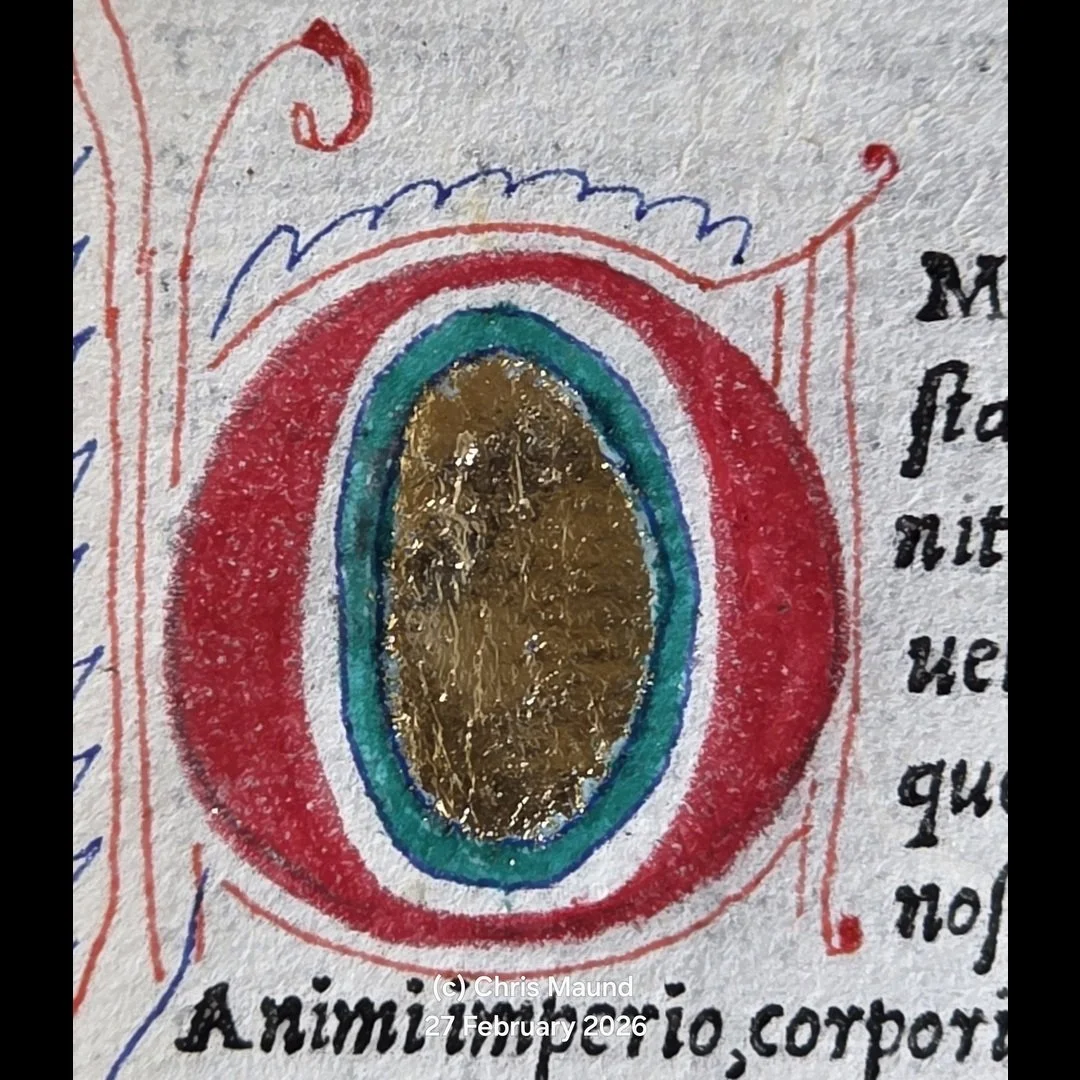 O
M
ſta
nit
ue
que
noſ
Animi imperio, corpori
(c) Chris Maund
27 February 2026